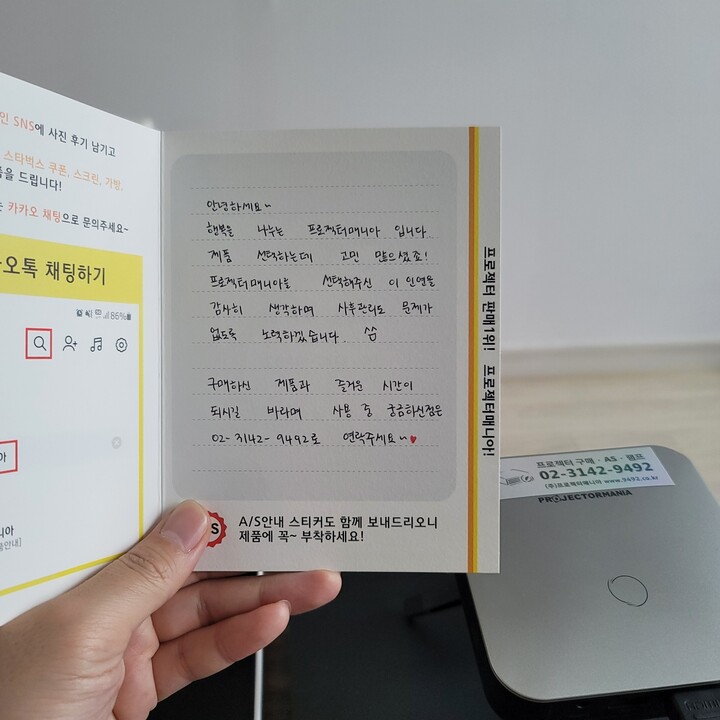 인 SNS에 사진 후기 남기고
스타벅스 쿠폰, 스크린, 가방,
을 드립니다!
는 카카오 채팅으로 문의주세요~
오톡 채팅하기
86%
아
니아
안내]
안녕하세요~
행복을 나누는 프로젝터매니아 입니다
제품 선택하는데 고민 많으셨죠!
프로젝터매니아를 선택해주신 이 인연을
감사히 생각하며 사후관리도 문제가
없도록 노력하겠습니다. ^^
구매하신 제품과 즐거운 시간이
되시길 바라며 사용 중 궁금하신점은
02-3142-9492로 연락주세요~♥
S
A/S안내 스티커도 함께 보내드리오니
제품에 꼭~ 부착하세요!
프로젝터 판매1위! 프로젝터매니아!
프로젝터 구매 · AS · 램프
02-3142-9492
(주)프로젝터매니아 www.9492.co.kr
PROJECTORMANIA
HDMI